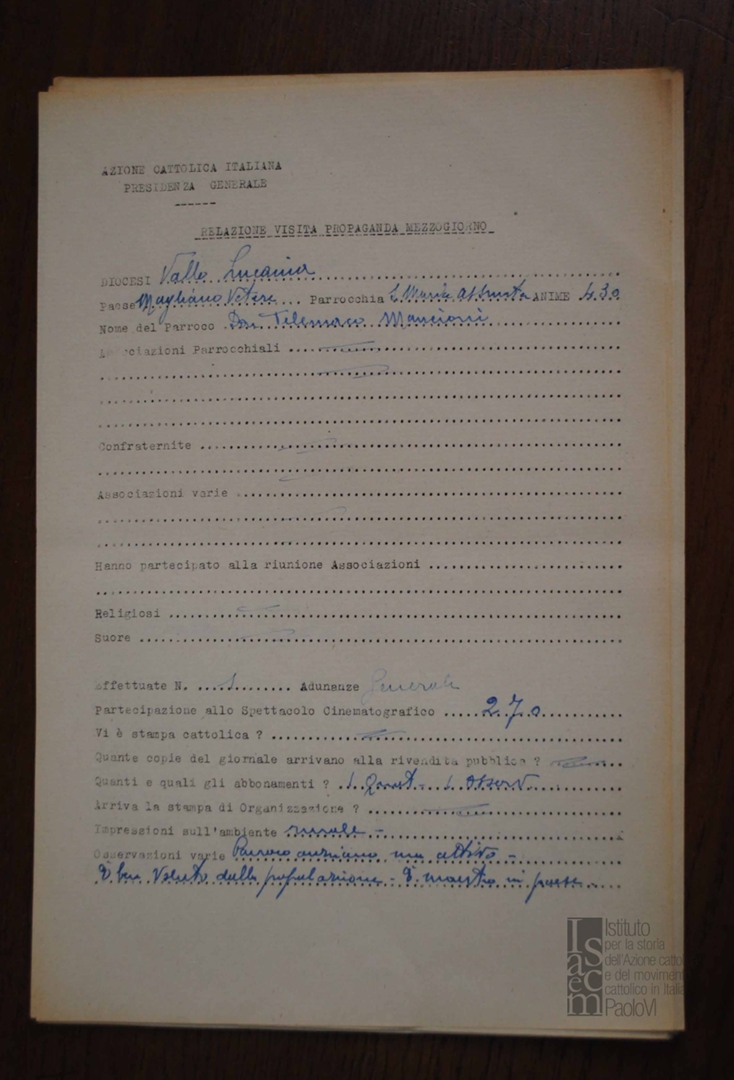 AZIONE CATTOLICA ITALIANA
PRESIDENZA GENERALE
------
RELAZIONE VISITA PROPAGANDA MEZZOGIORNO
DIOCESI Vallo Lucania
Paese Magliano Vetere ... Parrocchia S. Maria Assunta ANIME 430
Nome del Parroco Don Telemaco Mancioni
Associazioni Parrocchiali
Confraternite
Associazioni varie
Hanno partecipato alla riunione Associazioni
Religiosi
Suore
Effettuate N. 1 Adunanze Generali
Partecipazione allo Spettacolo Cinematografico 270
Vi è stampa cattolica ?
Quante copie del giornale arrivano alla rivendita pubblica ?
Quanti e quali gli abbonamenti ? 1 1 Osserv.
Arriva la stampa di Organizzazione ?
Impressioni sull'ambiente rurale -
Osservazioni varie Parroco anziano ma attivo -
È ben voluto dalla popolazione - È maestro in paese
Istituto
per la storia
dell'Azione cattol
e del moviment
cattolico in Italia
PaoloVI
Isacem